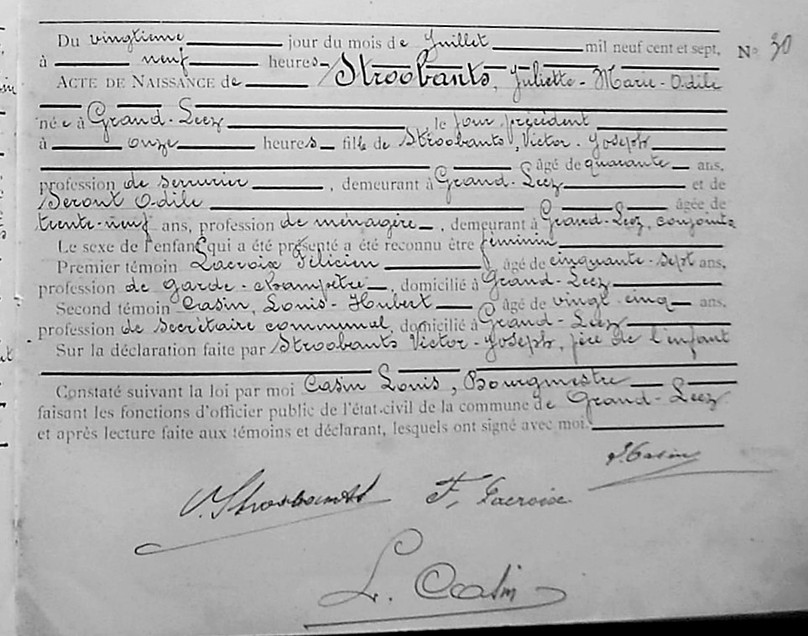 Du vingtième jour du mois de Juillet mil neuf cent et sept, N° 30
à neuf heures
ACTE DE NAISSANCE de Stroobants, Juliette-Marie-Odile
née à Grand-Leez le jour précédent
à onze heures fille de Stroobants, Victor-Joseph
âgé de quarante ans,
profession de serrurier, demeurant à Grand-Leez et de
Seront Odile âgée de
trente-neuf ans, profession de ménagère, demeurant à Grand-Leez, conjoints
Le sexe de l'enfant qui a été présenté a été reconnu être féminin
Premier témoin Lacroix Félicien âgé de cinquante-sept ans,
profession de garde-champêtre, domicilié à Grand-Leez
Second témoin Casin, Louis-Hubert âgé de vingt cinq ans,
profession de Secrétaire communal, domicilié à Grand-Leez
Sur la déclaration faite par Stroobants Victor-Joseph, père de l'enfant
Constaté suivant la loi par moi Casin Louis, Bourgmestre
faisant les fonctions d'officier public de l'état-civil de la commune de Grand-Leez
et après lecture faite aux témoins et déclarant, lesquels ont signé avec moi.
Casin
V. Stroobants F. Lacroix
L. Casin